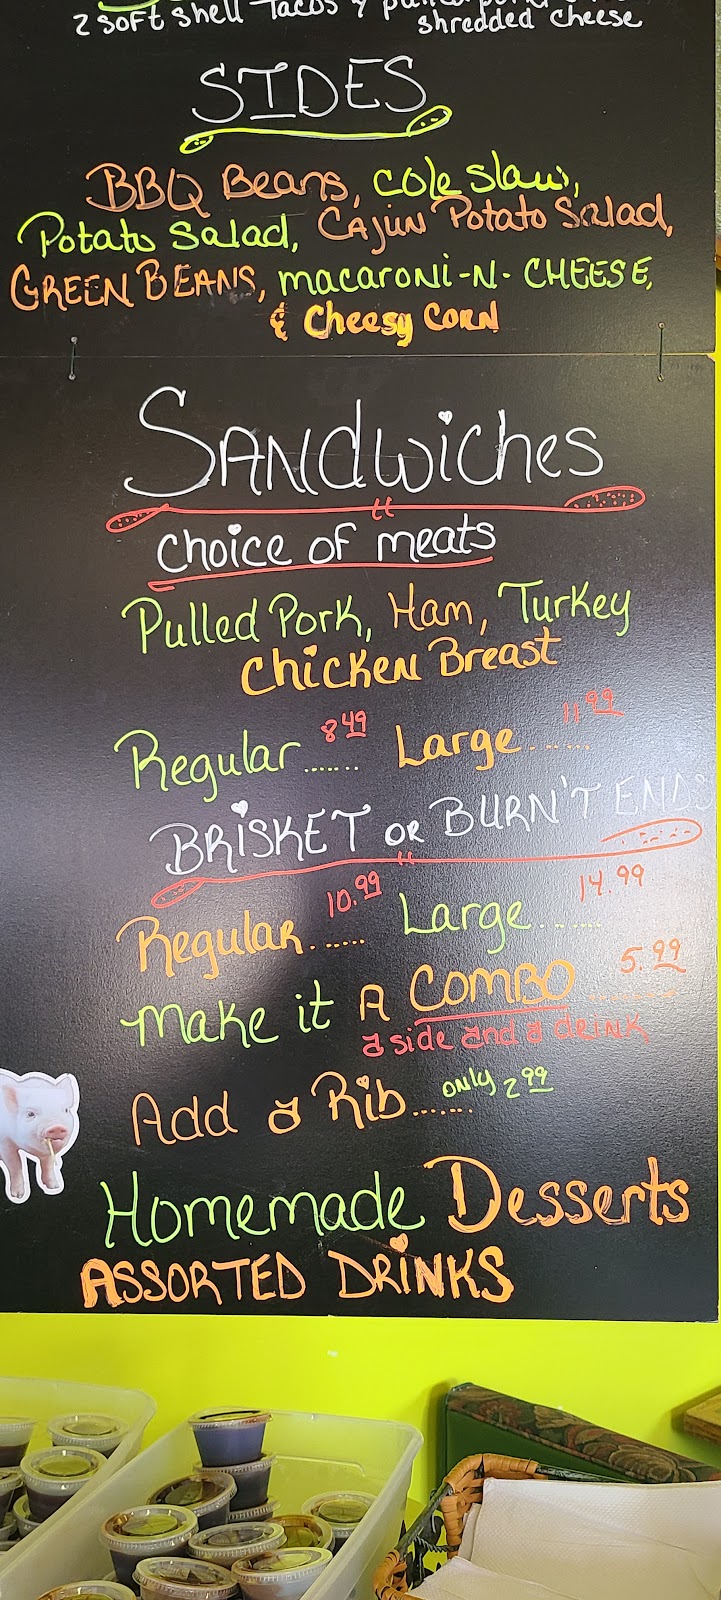 2 soft shell Tacos
shredded cheese
SIDES
BBQ Beans, Cole Slaw,
Potato Salad, Cajun Potato Salad,
GREEN BEANS, macaroni-N-CHEESE,
& Cheesy CORN
SANdwiches
choice of meats
Pulled Pork, Ham, Turkey
Chicken Breast
Regular...... 8 49 Large....... 11 99
BRISKET OR BURN'T ENDS
Regular...... 10.99 Large....... 14.99
make it A COMBO .......... 5.99
a side and a drink
Add a Rib....... only 2 99
Homemade Desserts
ASSORTED DRINKS